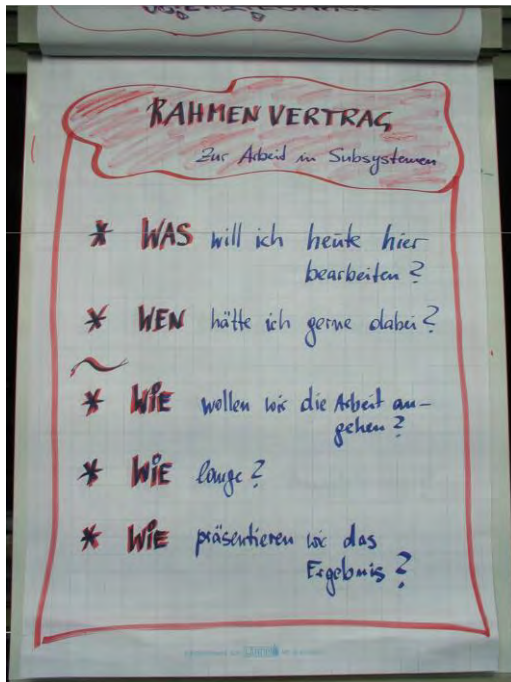 RAHMENVERTRAG
Zur Arbeit in Subsystemen
* WAS will ich heute hier
bearbeiten?
* WEN hätte ich gerne dabei?
* WIE wollen wir die Arbeit an-
gehen?
* WIE lange?
* WIE präsentieren wir das
Ergebnis?